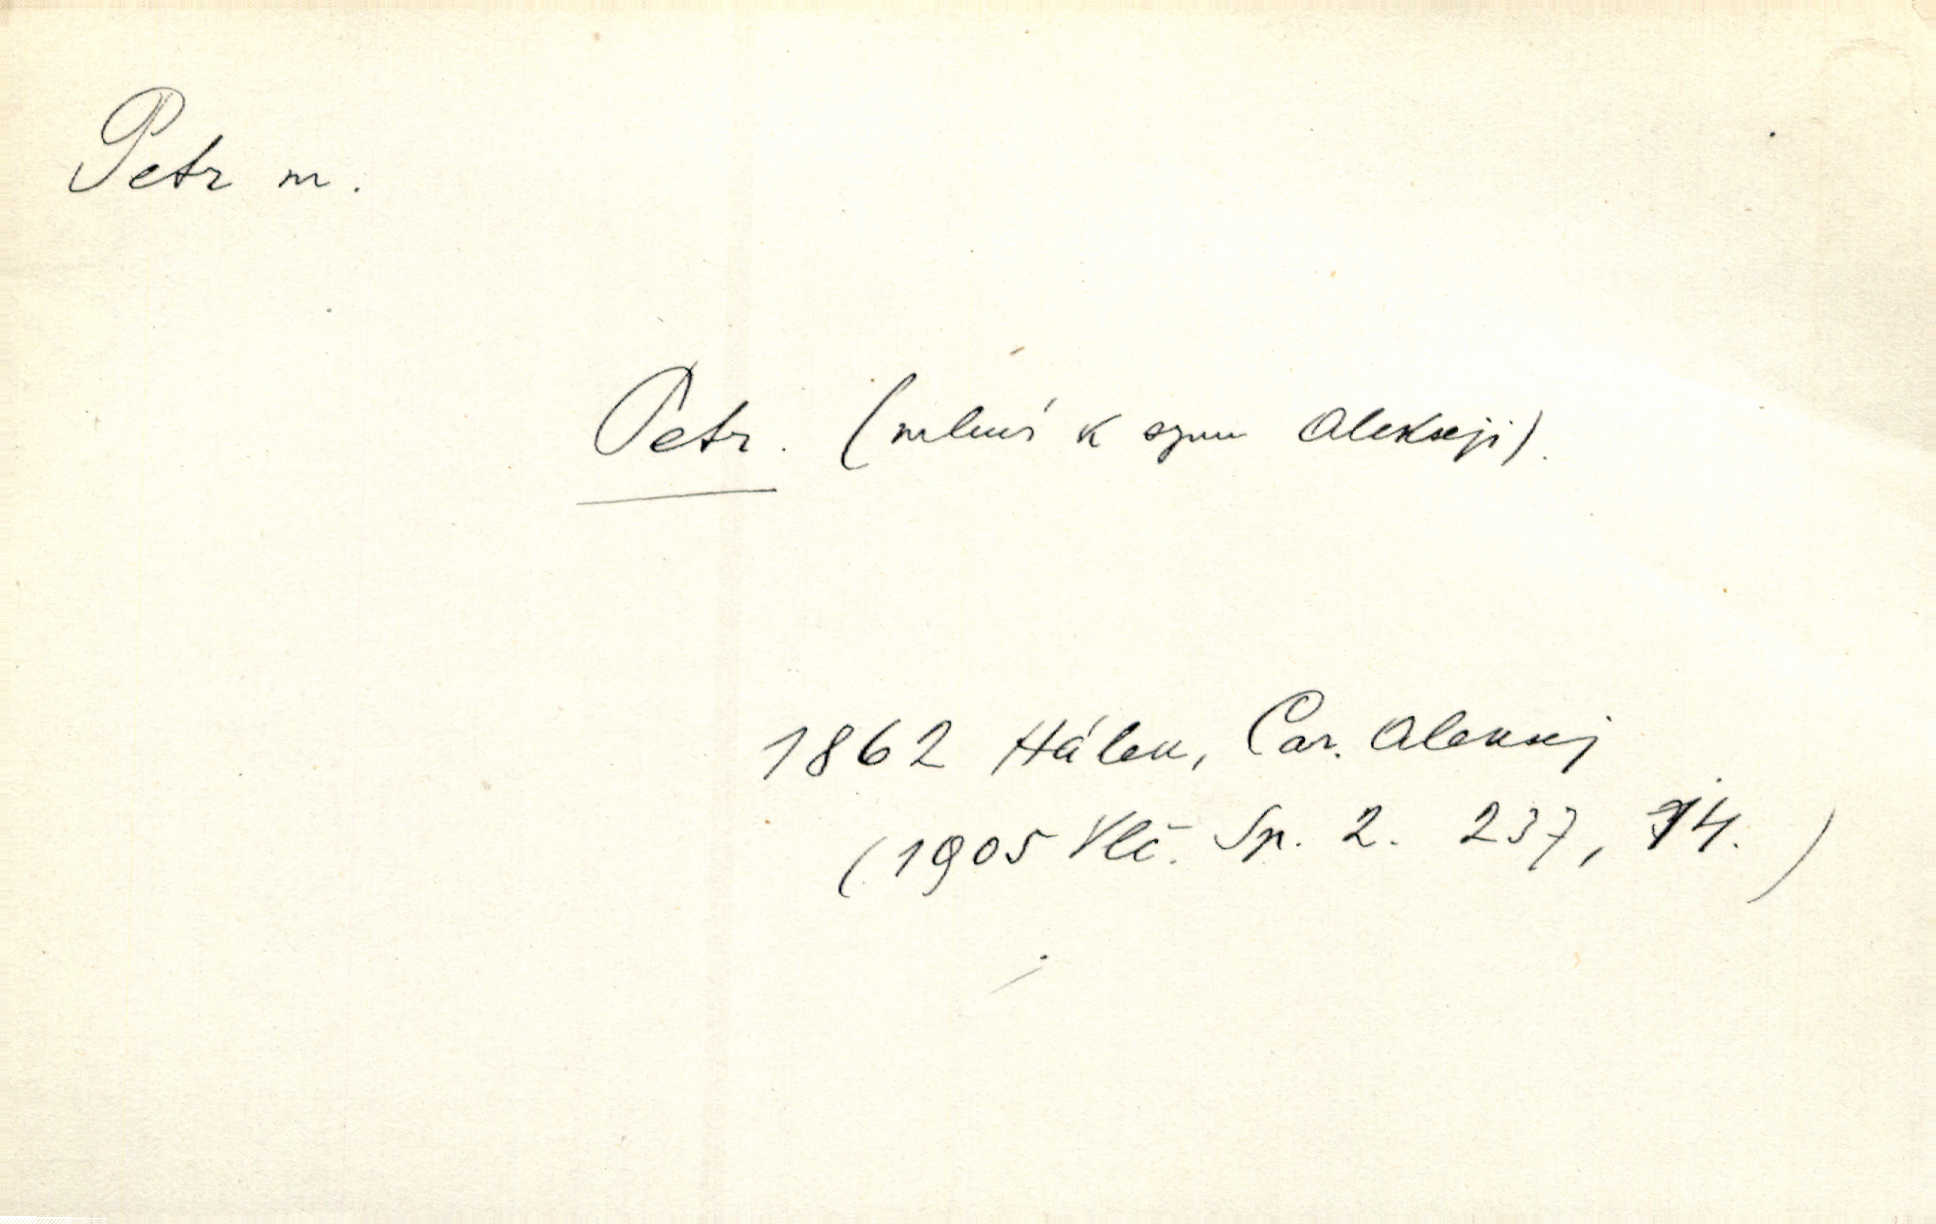 Petr m.
Petr. (mluví k synu Alekseji).
1862 Hálek, Car. Aleksej
(1905 Vlč. Sp. 2. 237, 14.)